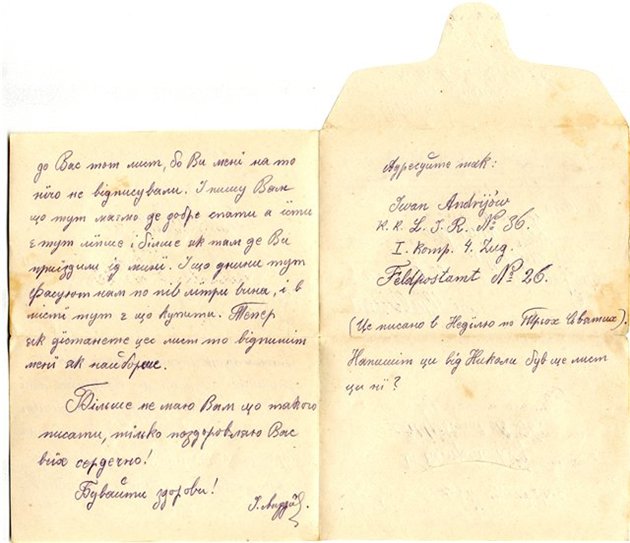 до Вас тот лист, бо Ви мені на то
нічо не відписували. І пишу Вам
що тут маємо де добре спати а їсти
є тут ліпше і більше як там де Ви
приїздили ід минї. І що днини тут
фасуют нам по пів літри вина, і в
місті тут є що купити. Тепер
як дістанете цес лист то відпишіт
мені як найборше.
Більше не маю Вам що такого
писати, тілько поздоровляю Вас
всїх сердечно!
Бувайте здорові!
І. Андрі
Адресуйте так:
Iwan Andrijów
K. K. L. I. R. № 36.
I. Komp. 4. Zug.
Feldpostamt № 26.
(Це писано в Неділю по Трьох Святих).
Напишіт ци від Николи був ще лист
ци нї?